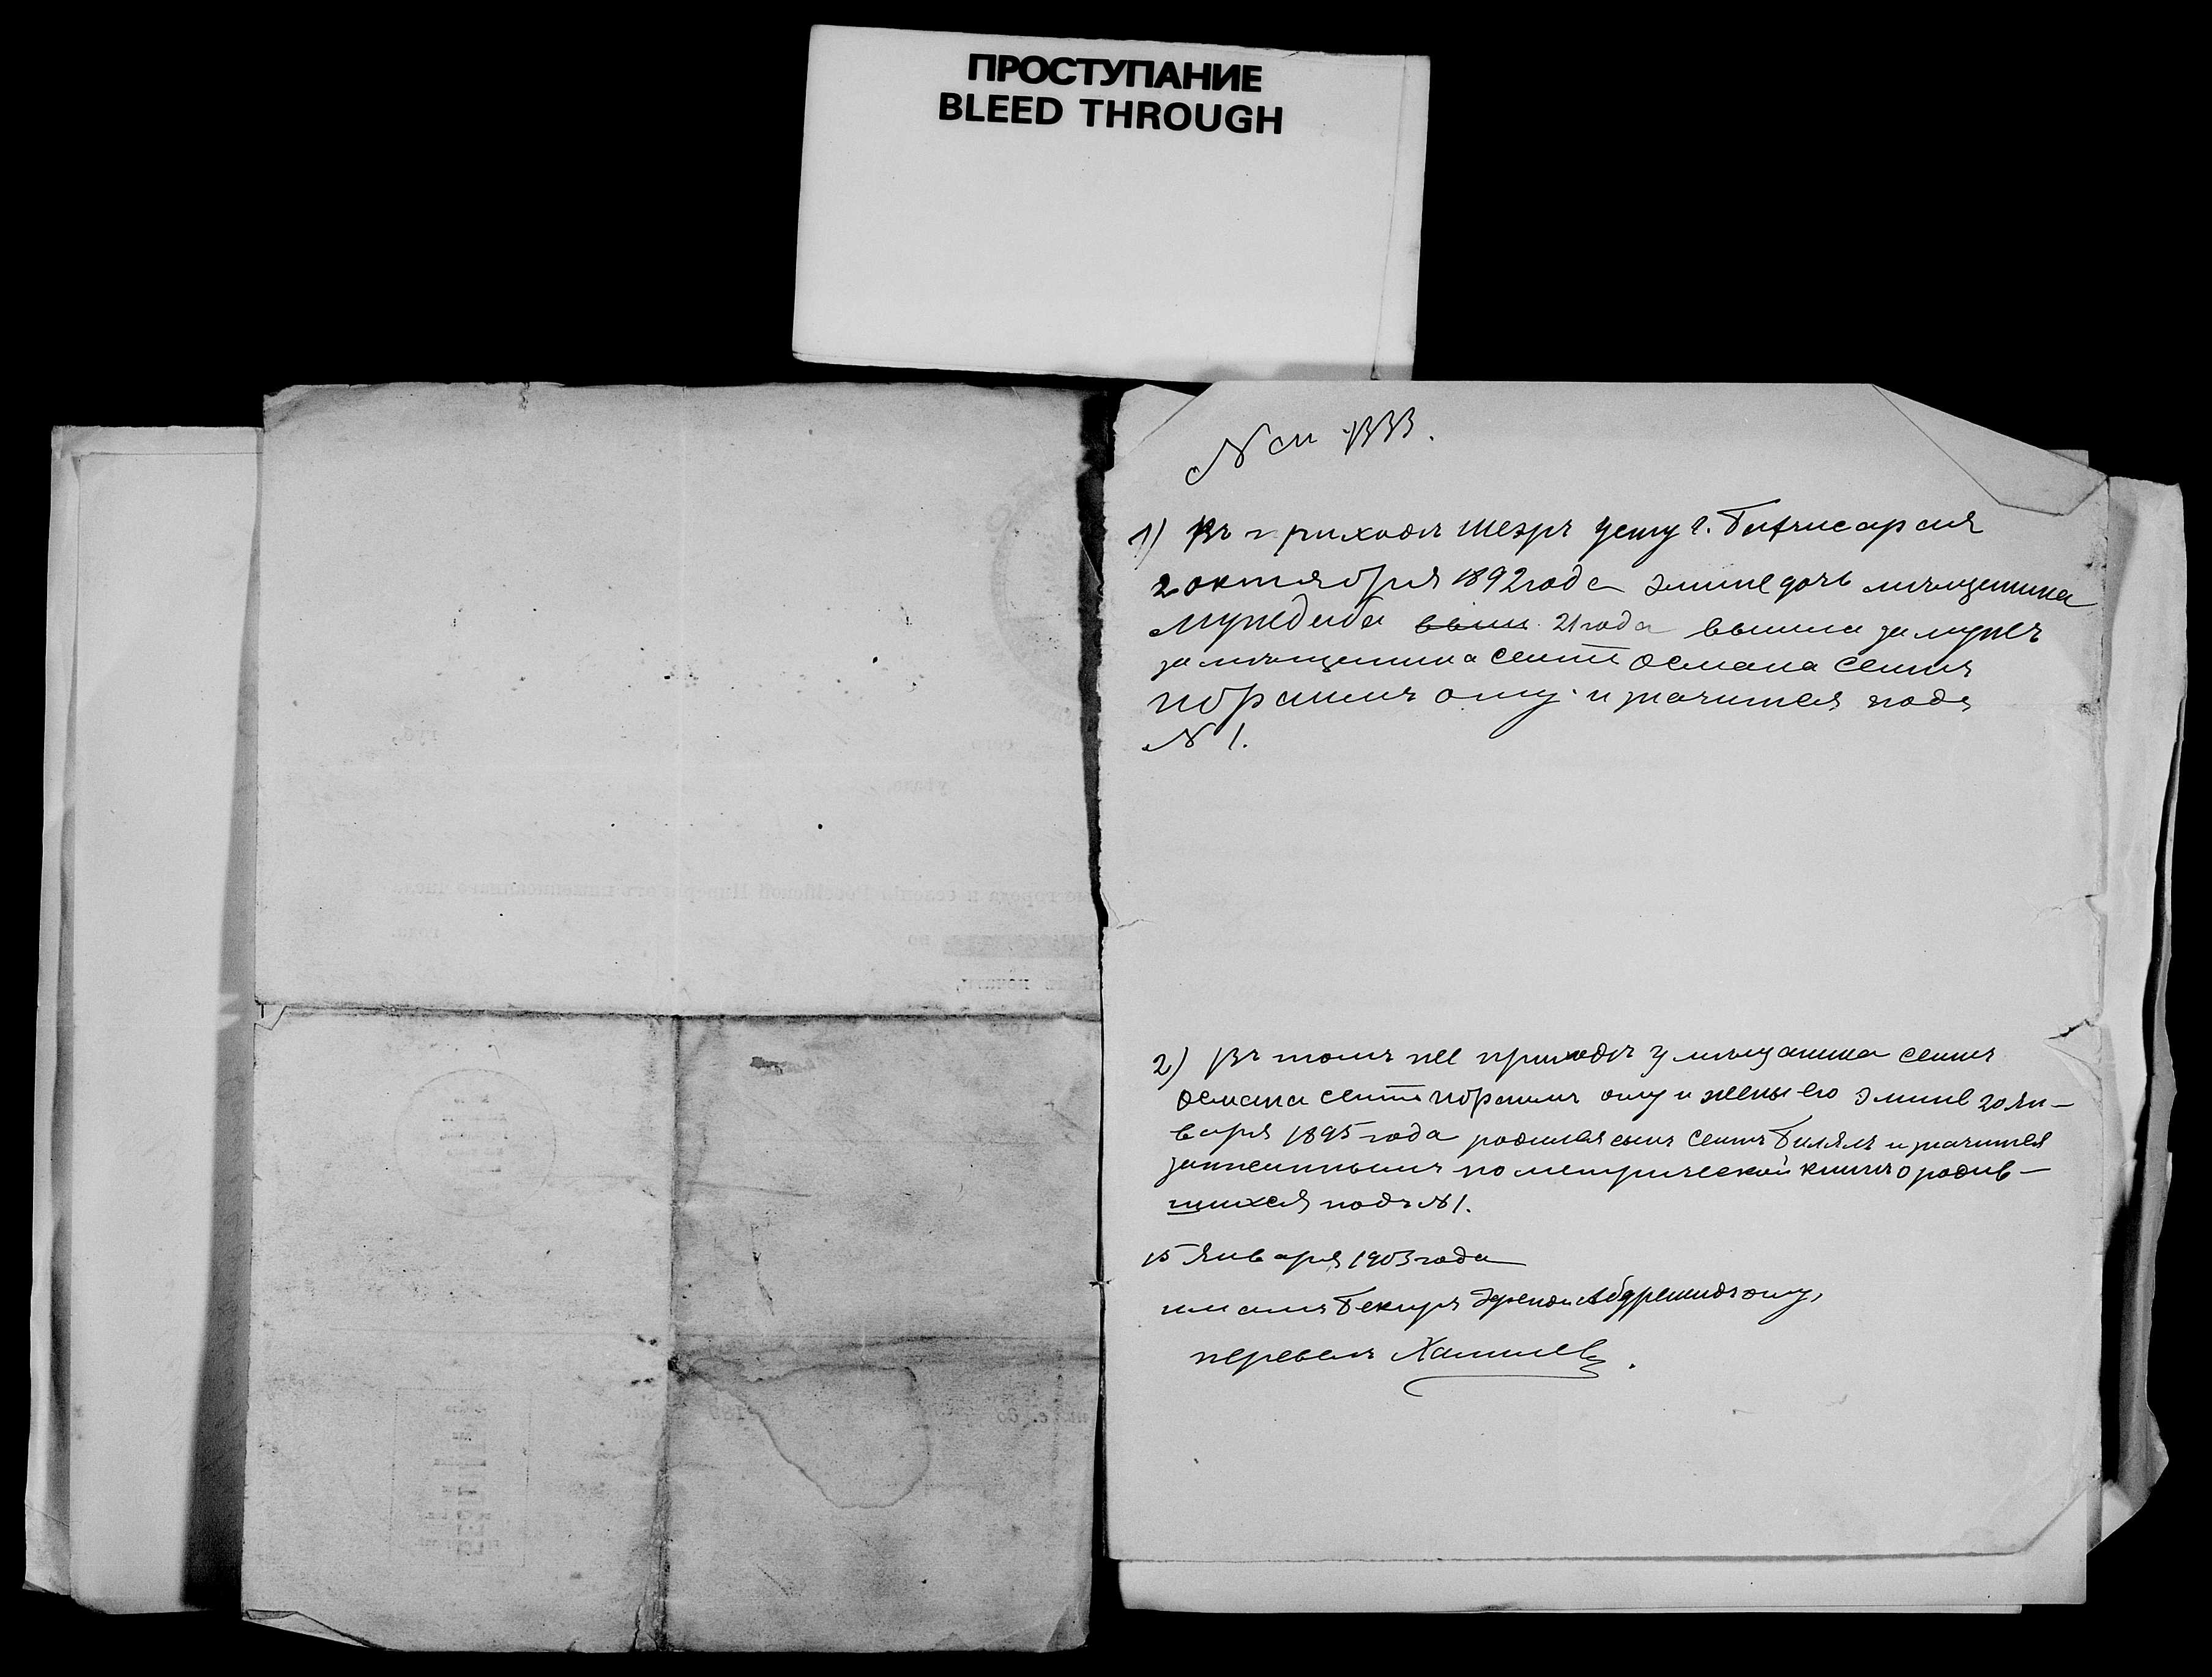 ПРОСТУПАНИЕ
BLEED THROUGH
1) Въ приходѣ Шеэръ Усту г. Бахчисарая
2 октября 1892 года Эмине дочь мѣщанина
Муждаба 21 года вышла замужъ
за мѣщанина Сеитъ Османа Сеитъ
Ибраимъ оглу и значится подъ
№ 1.
2) Въ томъ же приходѣ у мѣщанина Сеитъ
Османа Сеитъ Ибраимъ оглу и жены его Эмине 20 Ян-
варя 1895 года родился сынъ Сеитъ Билялъ и значится
записаннымъ по метрической книгѣ о родив-
шихся подъ № 1.
15 Января 1903 года
имамъ Бекиръ Эфенди Абдрешидъ оглу,
перевелъ